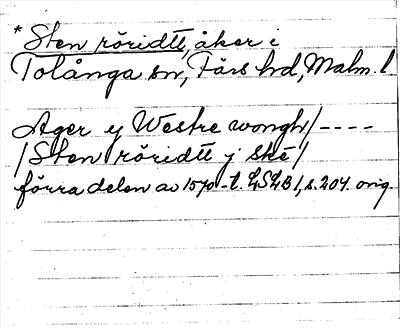 * Sten röridtt, åker i
Tolånga sn, Färs hd, Malm. l
Ager y Westre wongh/----
/Sten röridtt j Skè/
förra delen av 1570-t. LSLB 1, s. 204. orig.